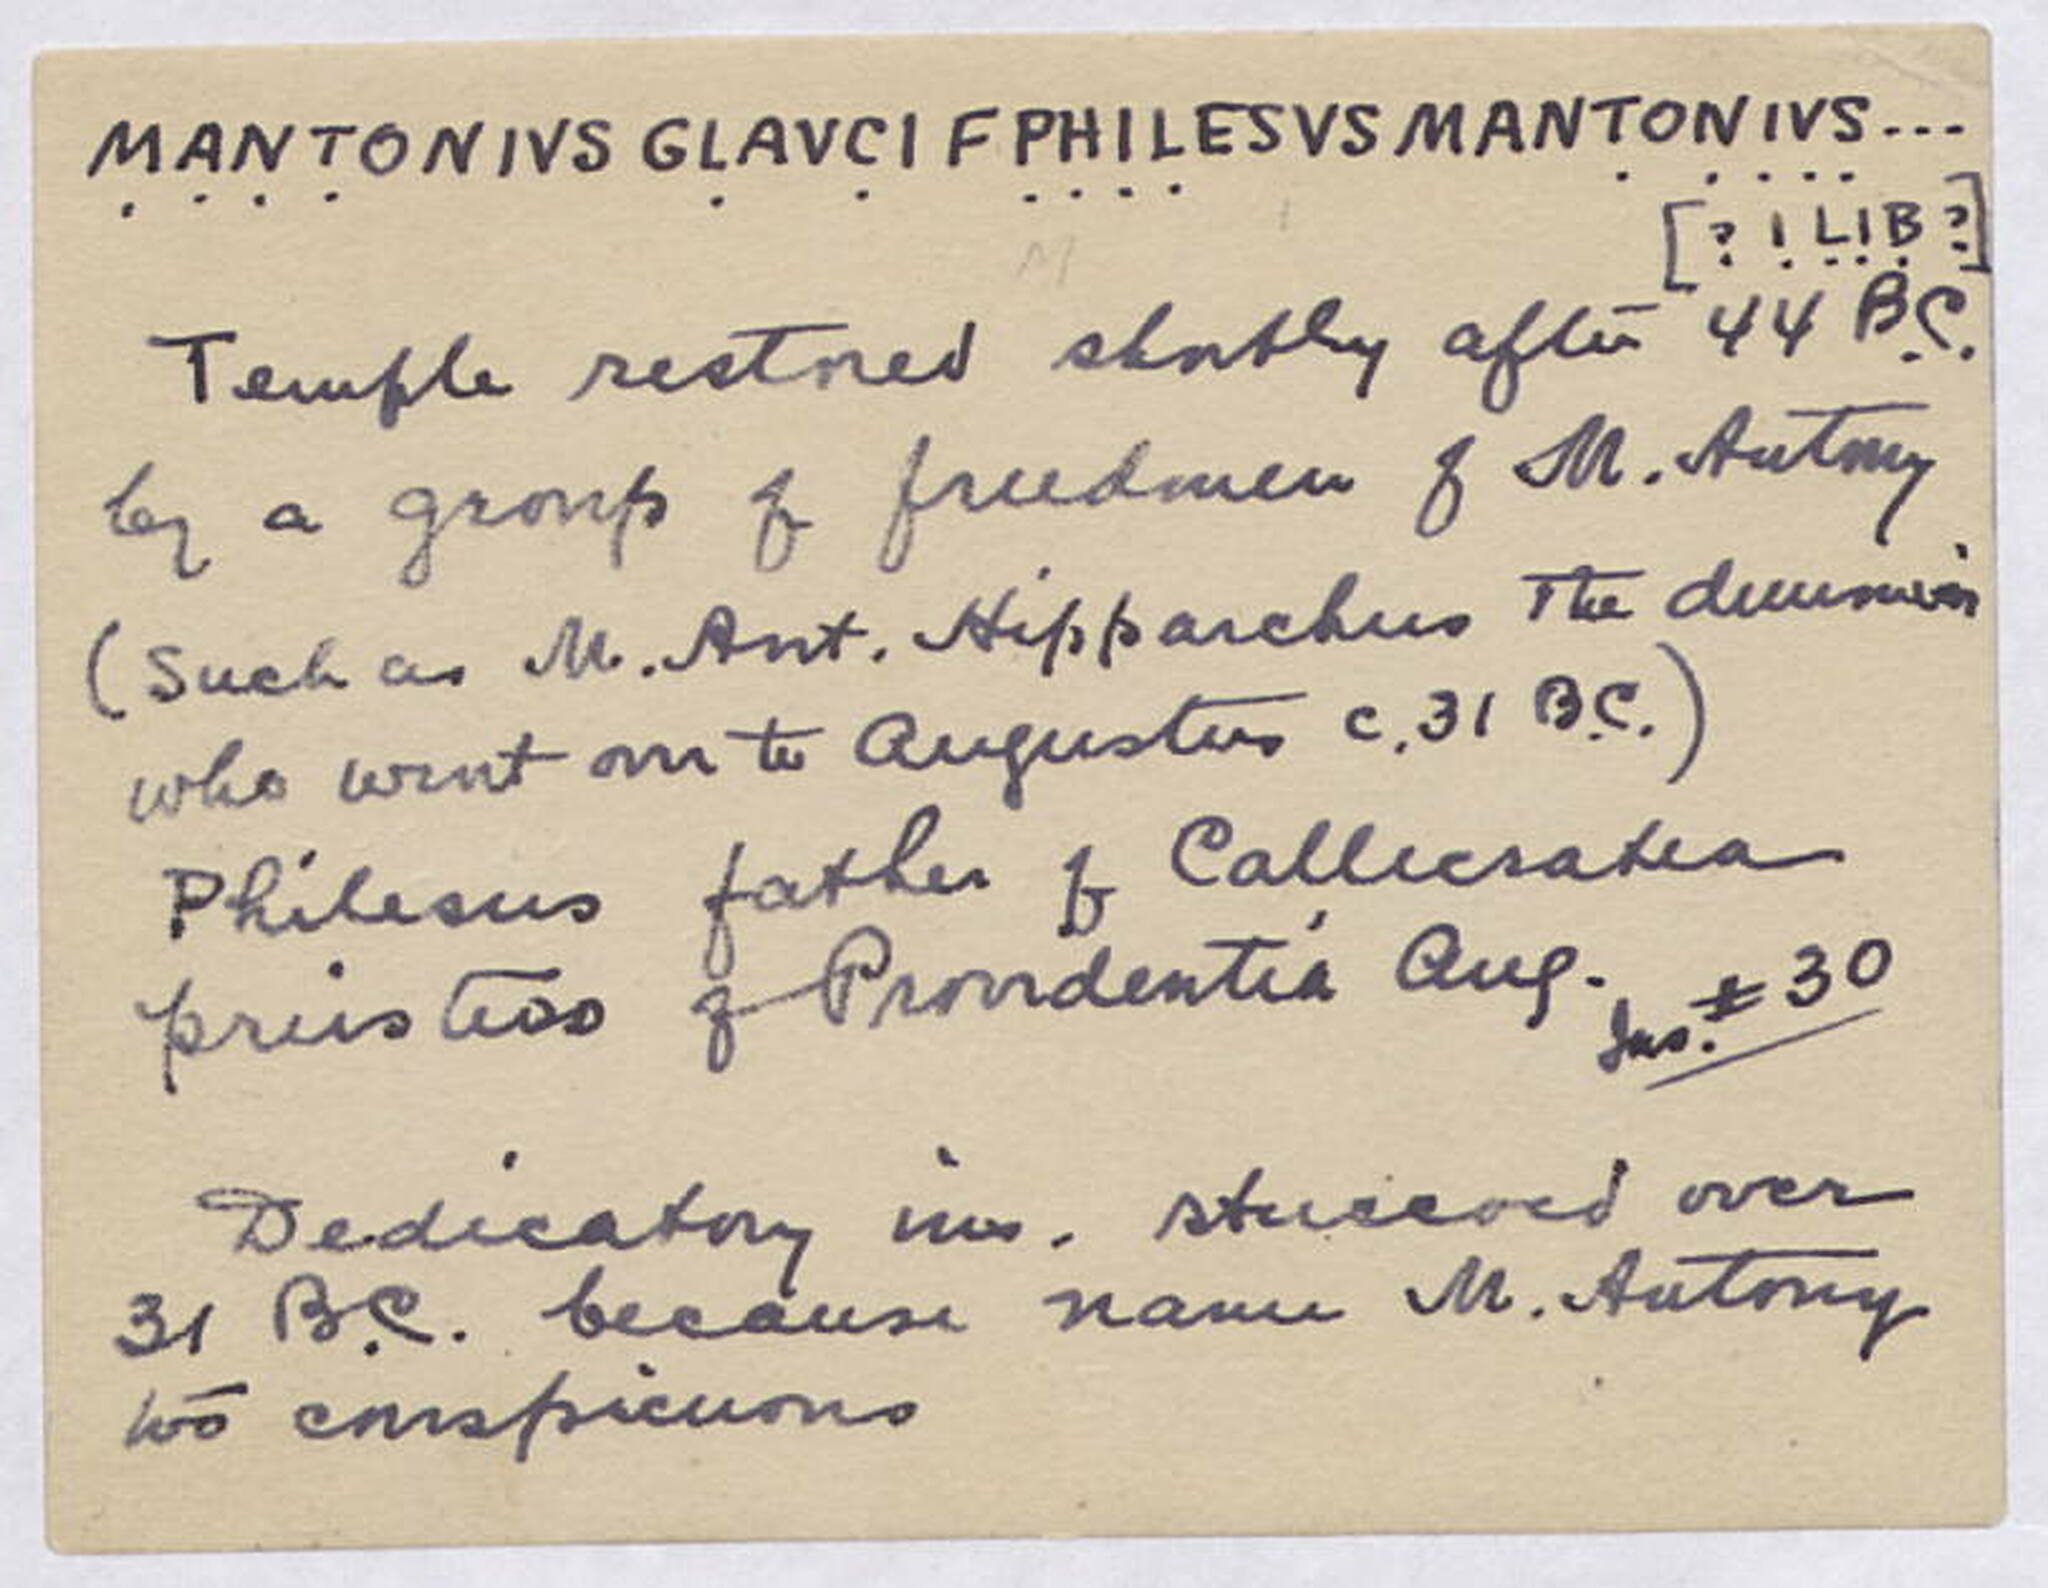 MANTONIVS GLAVCI F PHILESVS MANTONIVS---
[? I LIB ?]
Temple restored shortly after 44 B.C.
by a group of freedmen of M. Antony
(Such as M. Ant. Hipparchus the duumvir
who went over to Augustus c. 31 B.C.)
Philesus father of Callicratea
priestess of Providentia Aug.
Ins. # 30
Dedicatory ins. stuccoed over
31 B.C. because name M. Antony
too conspicuous